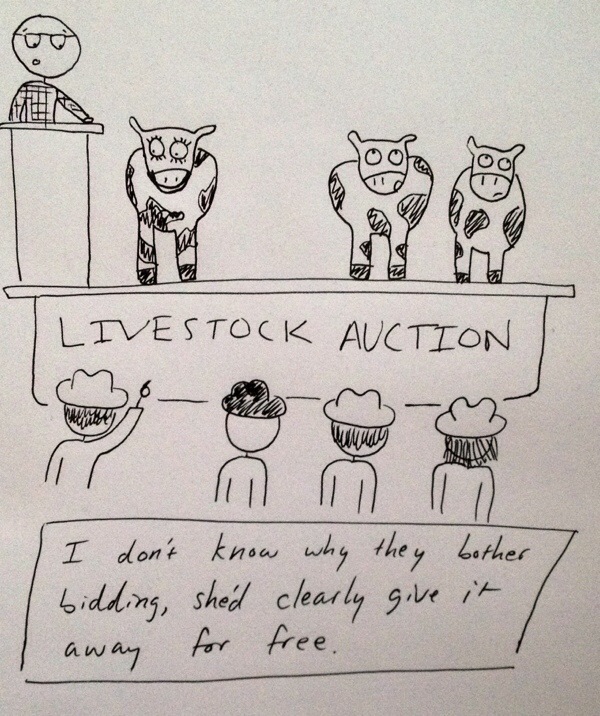 LIVESTOCK AUCTION
I don't know why they bother
bidding, she'd clearly give it
away for free.